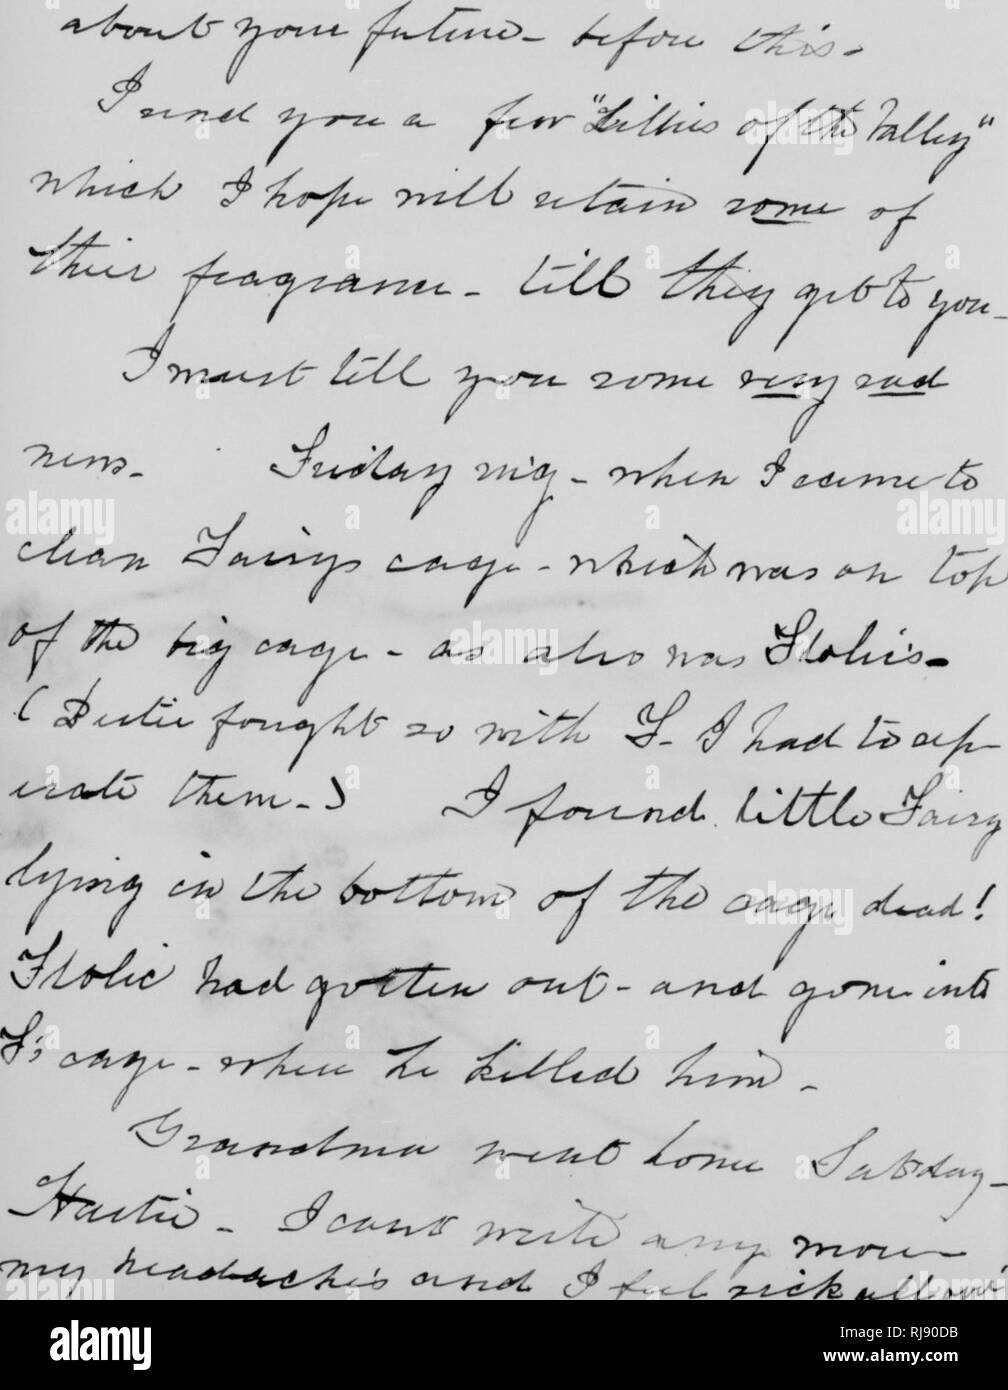 about your future - before this -
I send you a few "Lillies of the Valley"
which I hope will retain some of
their fragrance - till they get to you -
I must tell you some very sad
news - Friday nig - when I came to
clean Fairys cage - which was on top
of the big cage - as also was Frolic's -
( fought so with F - I had to sep
erate them - ) I found little Fairy
lying in the bottom of the cage dead!
Frolic had gotten out - and gone into
F's cage - where he killed him -
Grandma went home Saturday -
Hattie - I cant write any more -
my headaches and I feel sick all over
alamy
Image ID: RJ90DB
www.alamy.com